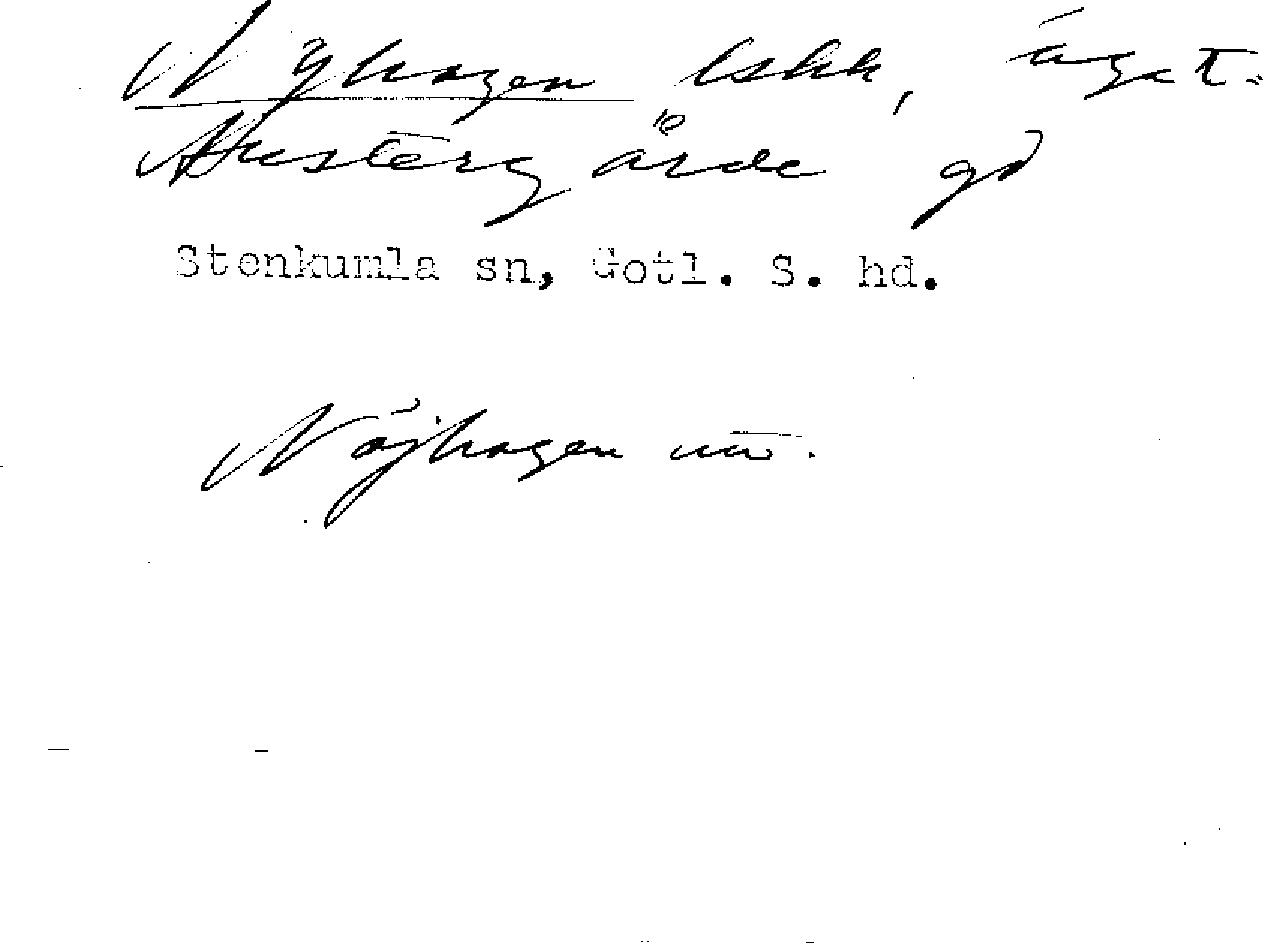 Nyhagen lskk, äget.
Austergårde gd
Stenkumla sn, Gotl. S. hd.
Nöjhagen uu.